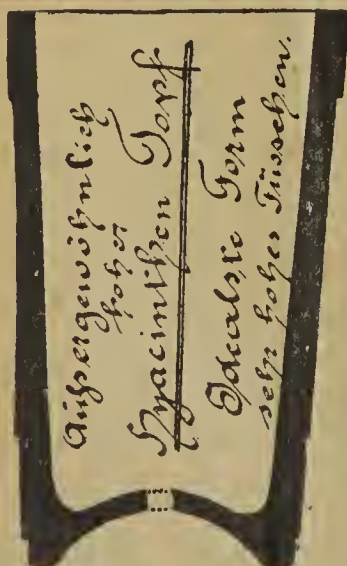 Außergewöhnlich
hoher
Hyacinthen Topf
Idealste Form
sehr hohes Füsschen.